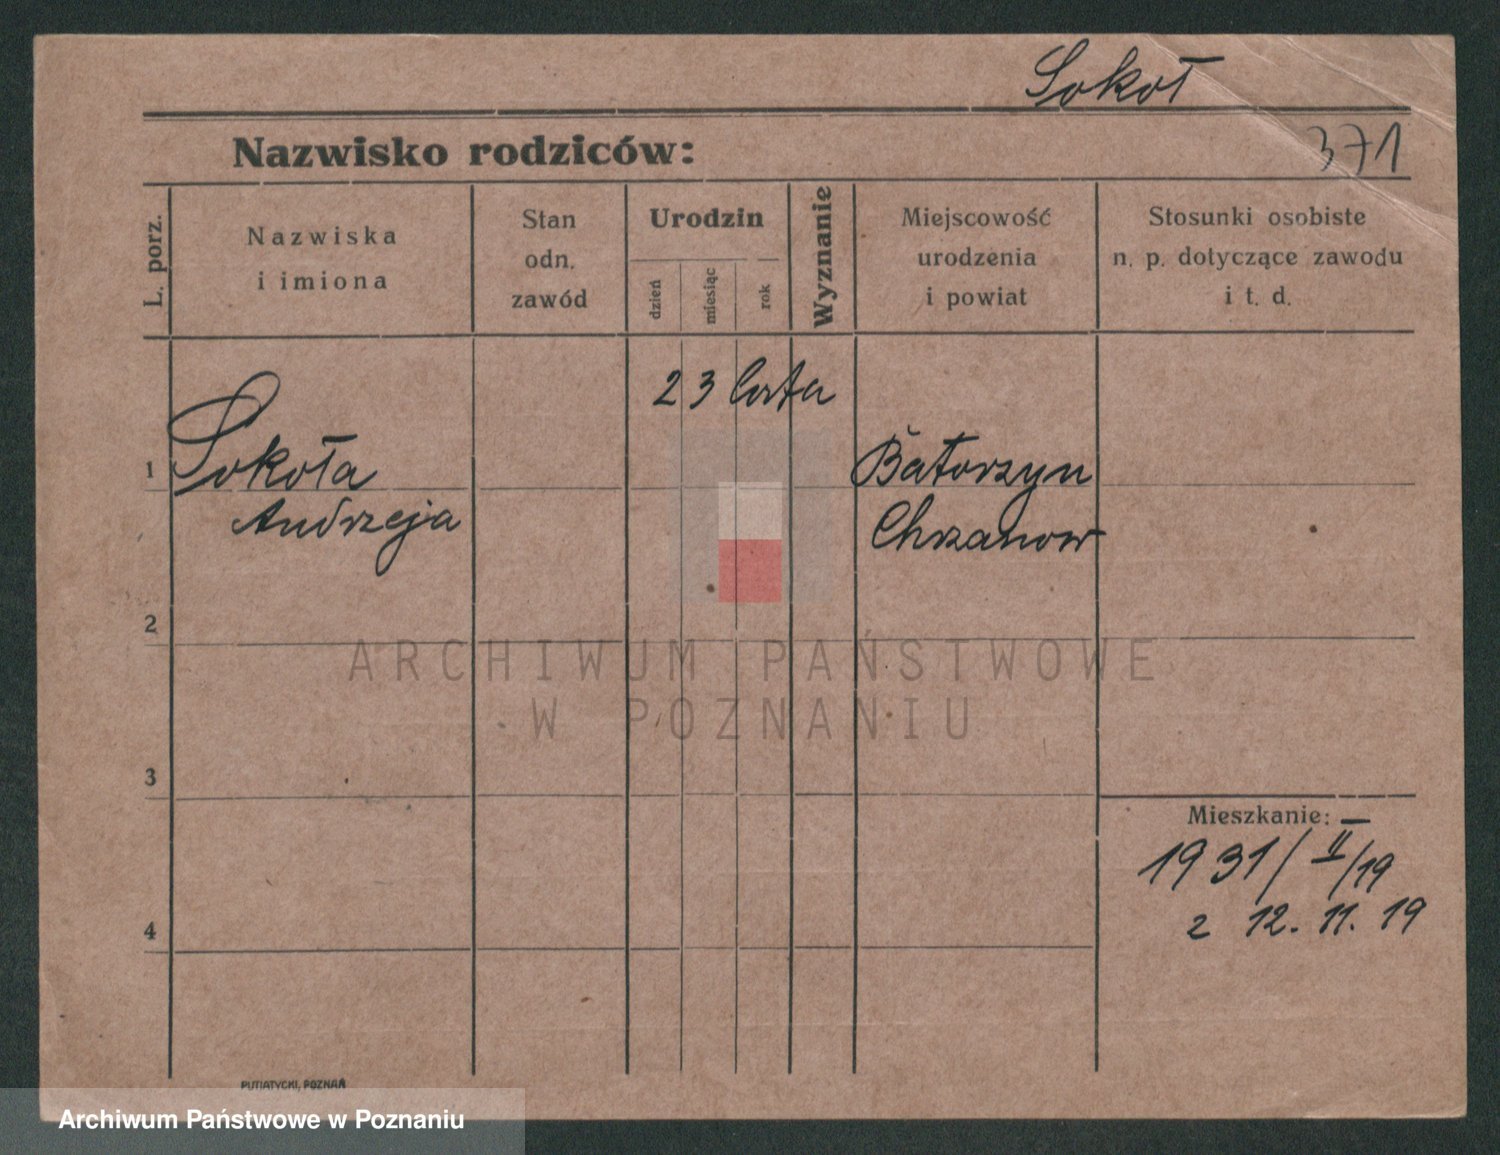 Sokoł
Nazwisko rodziców:
371
L. porz.
Nazwiska
i imiona
Stan
odn.
zawód
Urodzin
dzień
miesiąc
rok
Wyznanie
Miejscowość
urodzenia
i powiat
Stosunki osobiste
n. p. dotyczące zawodu
i t. d.
23 lata
1
Sokoła
Andrzeja
Batorzyn
Chrzanow
2
3
4
ARCHIWUM PAŃSTWOWE
W POZNANIU
Mieszkanie: –
1931/II/19
z 12. 11. 19
PUTIATYCKI, POZNAŃ
Archiwum Państwowe w Poznaniu